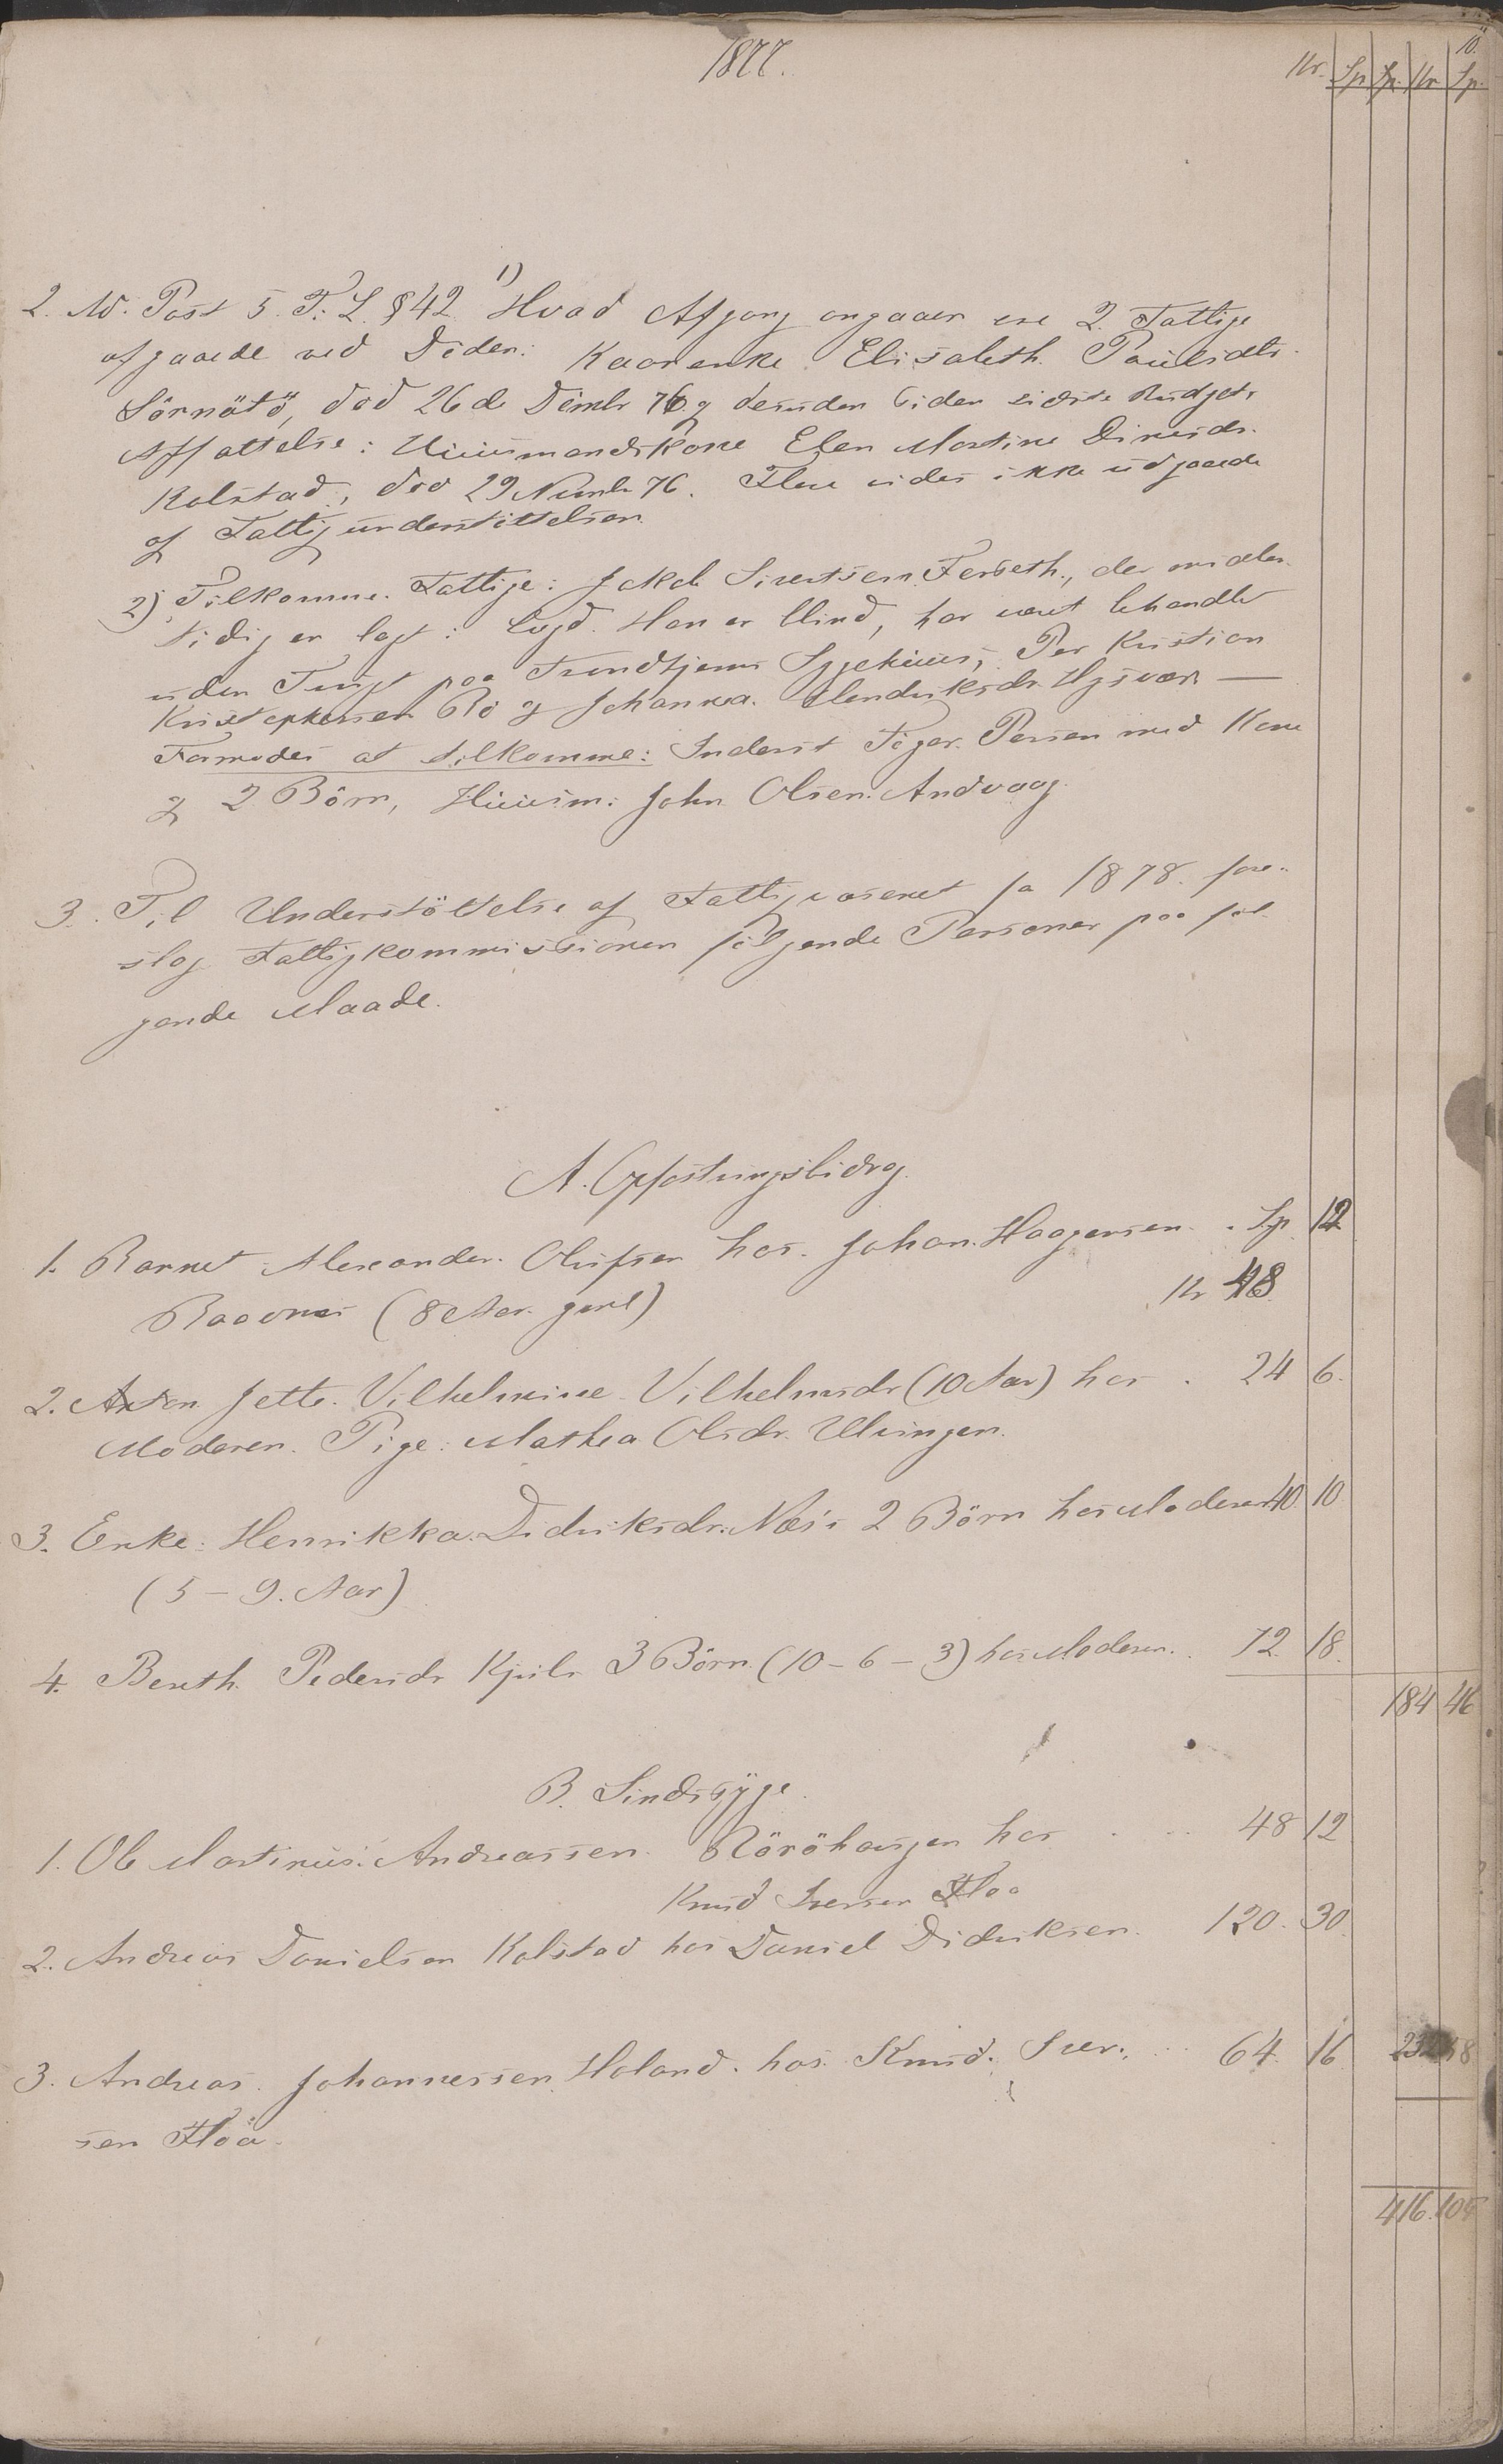 10.
1877.
Kr. Sp Sp. Kr Sp.
2. Post 5. F. L. § 42. 1) Hvad Afgang angaaer ere 2. Fattige
afgaaede ved Döden: Kaarenke Elisabeth Paulsdtr.
Sörnätö, död 26de Dembr 76 g desuden siden sidste Budgets
Affattelse: Huusmandskone Elen Martine Dinesdr.
Kolstad, död 29 Novmbr 76. Flere vides ikke udgaaede
af Fattigunderstöttelsen.
2) Tilkomne Fattige: Jakob Sivertsen Forseth, der midler-
tidig er lagt i Lægd. Han er blind, har været behandlet
uden Frugt paa Trondhjems Sygehuus, Per Kristian
Kristophersen Rö g Johanna Hendriksdr. —
Formodes at tilkomme: Inderst Peder Persen med Kone
g 2 Börn, Huusm: John Olsen Andvaag.
3. Til Understöttelse af Fattigvæsenet for 1878. fore-
slog Fattigkommissionen fölgende Personer paa föl-
gende Maade.
A. Opfostringsbidrag.
1. Barnet Alexander Olufsen hos Johan Haagensen . Sp. 12
(8 Aar gml) Kr 48
2. Jette Vilhelmine Vilhelmsdr (10 Aar) hos . 24 6.
Moderen Pige: Mathea Olsdr. Ulvingen.
3. Enke: Henrikka Didriksdr. Næss 2 Börn hos Moderen 40 10
(5 - 9. Aar)
4. Bereth Pedersdr 3 Börn (10 - 6 - 3) hos Moderen. . 72. 18.
184 46
B. Sindssyge.
1. Ole Martinus Andreassen Röröhaugen hos . . . 48 12
Knud Iversen Floa
2. Andreas Danielsen Kolstad hos Daniel Didriksen. 120. 30.
3. Andreas Johannessen Holand hos Knud Iver- . . . 64 16 232 58
sen Floa.
416. 104